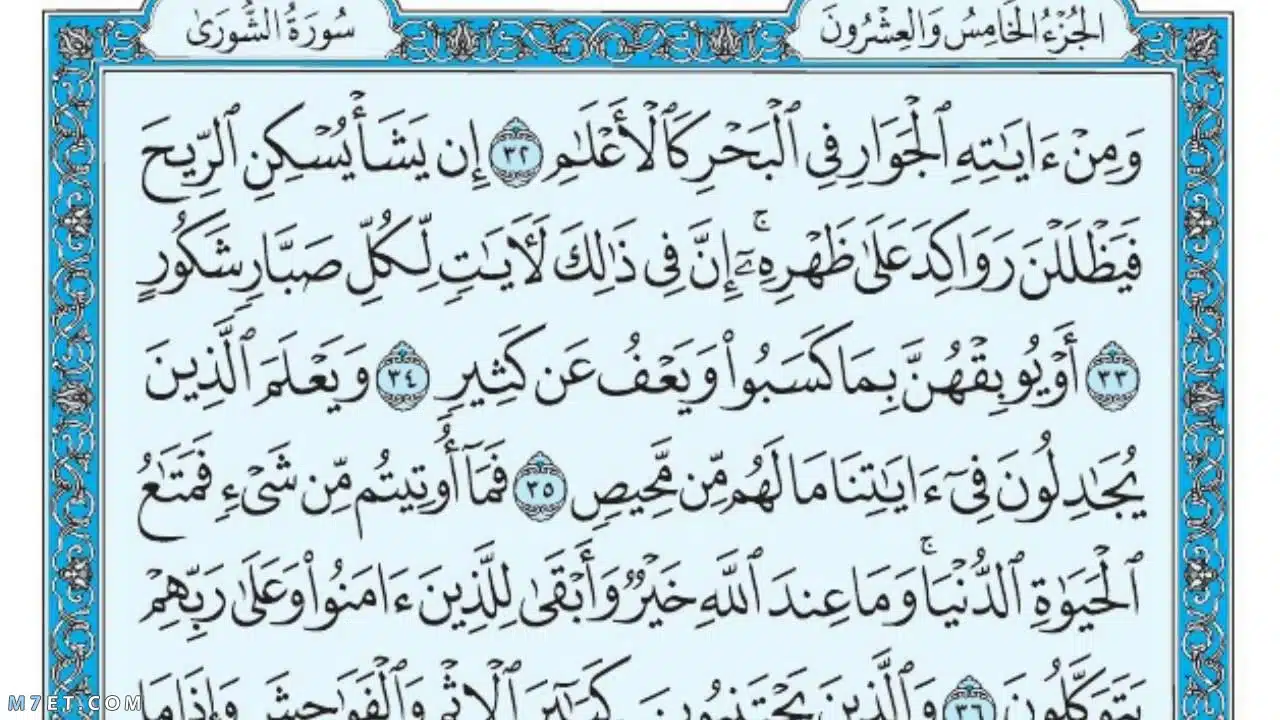 الجُزْءُ الخَامِسُ وَالعِشْرُونَ
سُورَةُ الشُّورَىٰ
وَمِنْ ءَايَٰتِهِ ٱلْجَوَارِ فِى ٱلْبَحْرِ كَٱلْأَعْلَٰمِ ٣٢ إِن يَشَأْ يُسْكِنِ ٱلرِّيحَ
فَيَظْلَلْنَ رَوَاكِدَ عَلَىٰ ظَهْرِهِۦٓ ۚ إِنَّ فِى ذَٰلِكَ لَأٓيَٰتٍ لِّكُلِّ صَبَّارٍ شَكُورٍ
٣٣ أَوْ يُوبِقْهُنَّ بِمَا كَسَبُوا۟ وَيَعْفُ عَن كَثِيرٍ ٣٤ وَيَعْلَمَ ٱلَّذِينَ
يُجَٰدِلُونَ فِىٓ ءَايَٰتِنَا مَا لَهُم مِّن مَّحِيصٍ ٣٥ فَمَآ أُوتِيتُم مِّن شَىْءٍ فَمَتَٰعُ
ٱلْحَيَوٰةِ ٱلدُّنْيَا ۚ وَمَا عِندَ ٱللَّهِ خَيْرٌ وَأَبْقَىٰ لِلَّذِينَ ءَامَنُوا۟ وَعَلَىٰ رَبِّهِمْ
يَتَوَكَّلُونَ ٣٦ وَٱلَّذِينَ يَجْتَنِبُونَ كَبَٰٓئِرَ ٱلْإِثْمِ وَٱلْفَوَٰحِشَ وَإِذَا مَا
M7ET.COM